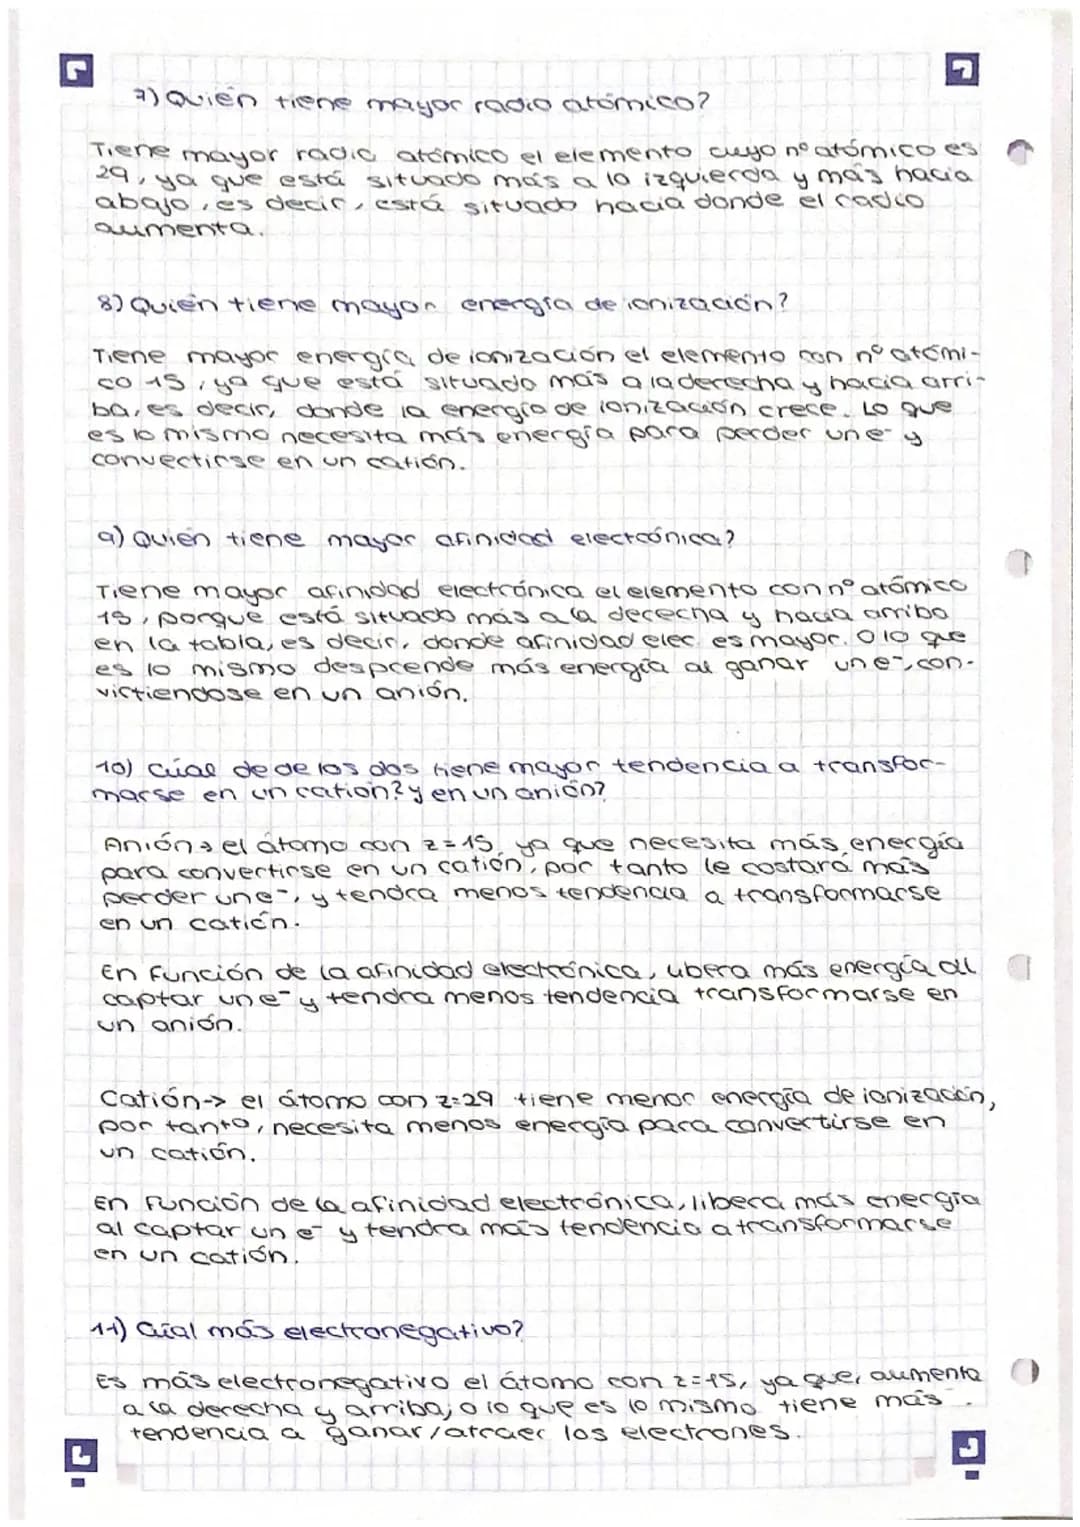 7) Quién tiene mayor radio atómico?
Tiene mayor radio atómico el elemento cuyo nº atómico es
29, ya que está situado más a la izquierda y más hacia
abajo, es decir, está situado hacia donde el radio
aumenta.
8) Quién tiene mayor energía de ionización?
Tiene mayor energía de ionización el elemento con nº atómi-
co 15, ya que está situado más a la derecha y hacia arri-
ba, es decir, donde la energía de ionización crece. Lo que
es lo mismo necesita más energía para perder un e⁻ y
convertirse en un catión.
9) Quién tiene mayor afinidad electrónica?
Tiene mayor afinidad electrónica el elemento con nº atómico
15, porque está situado más a la derecha y hacia arriba
en la tabla, es decir, donde afinidad elec. es mayor. O lo que
es lo mismo desprende más energía al ganar un e⁻, con-
virtiendose en un anión.
10) Cúal de de los dos tiene mayor tendencia a transfor-
marse en un catión? y en un anión?
Anión → el átomo con z=15, ya que necesita más energía
para convertirse en un catión, por tanto le costará más
perder un e⁻, y tendra menos tendencia a transformarse
en un catión.
En función de la afinidad electrónica, libera más energía al
captar un e⁻ y tendra menos tendencia transformarse en
un anión.
Catión → el átomo con z=29 tiene menor energía de ionización,
por tanto, necesita menos energía para convertirse en
un catión.
En función de la afinidad electrónica, libera más energía
al captar un e⁻ y tendra más tendencia a transformarse
en un catión.
11) Cúal más electronegativo?
Es más electronegativo el átomo con z=15, ya que, aumenta
a la derecha y arriba, o lo que es lo mismo tiene más
tendencia a ganar/atraer los electrones.